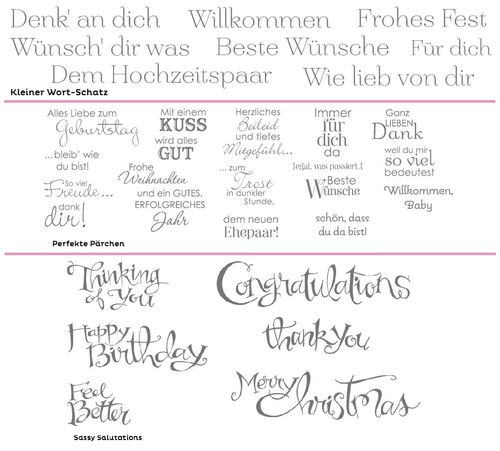 Denk' an dich Willkommen Frohes Fest
Wünsch' dir was Beste Wünsche Für dich
Dem Hochzeitspaar Wie lieb von dir
Kleiner Wort-Schatz
Alles Liebe zum
Geburtstag
Mit einem
KUSS
wird alles
GUT
Herzliches
Beileid
und tiefes
Mitgefühl...
Immer
für
dich
da
Ganz
LIEBEN
Dank
...bleib' wie
du bist!
Frohe
Weihnachten
und ein GUTES,
ERFOLGREICHES
Jahr
...zum
Trost
in dunkler
Stunde,
(egal, was passiert.)
Beste
Wünsche
weil du mir
so viel
bedeutest
So viel
Freude...
dank
dir!
dem neuen
Ehepaar!
schön, dass
du da bist!
Willkommen,
Baby
Perfekte Pärchen
Thinking
of You
Congratulations
Happy
Birthday
thank you
Feel
Better
Merry
Christmas
Sassy Salutations